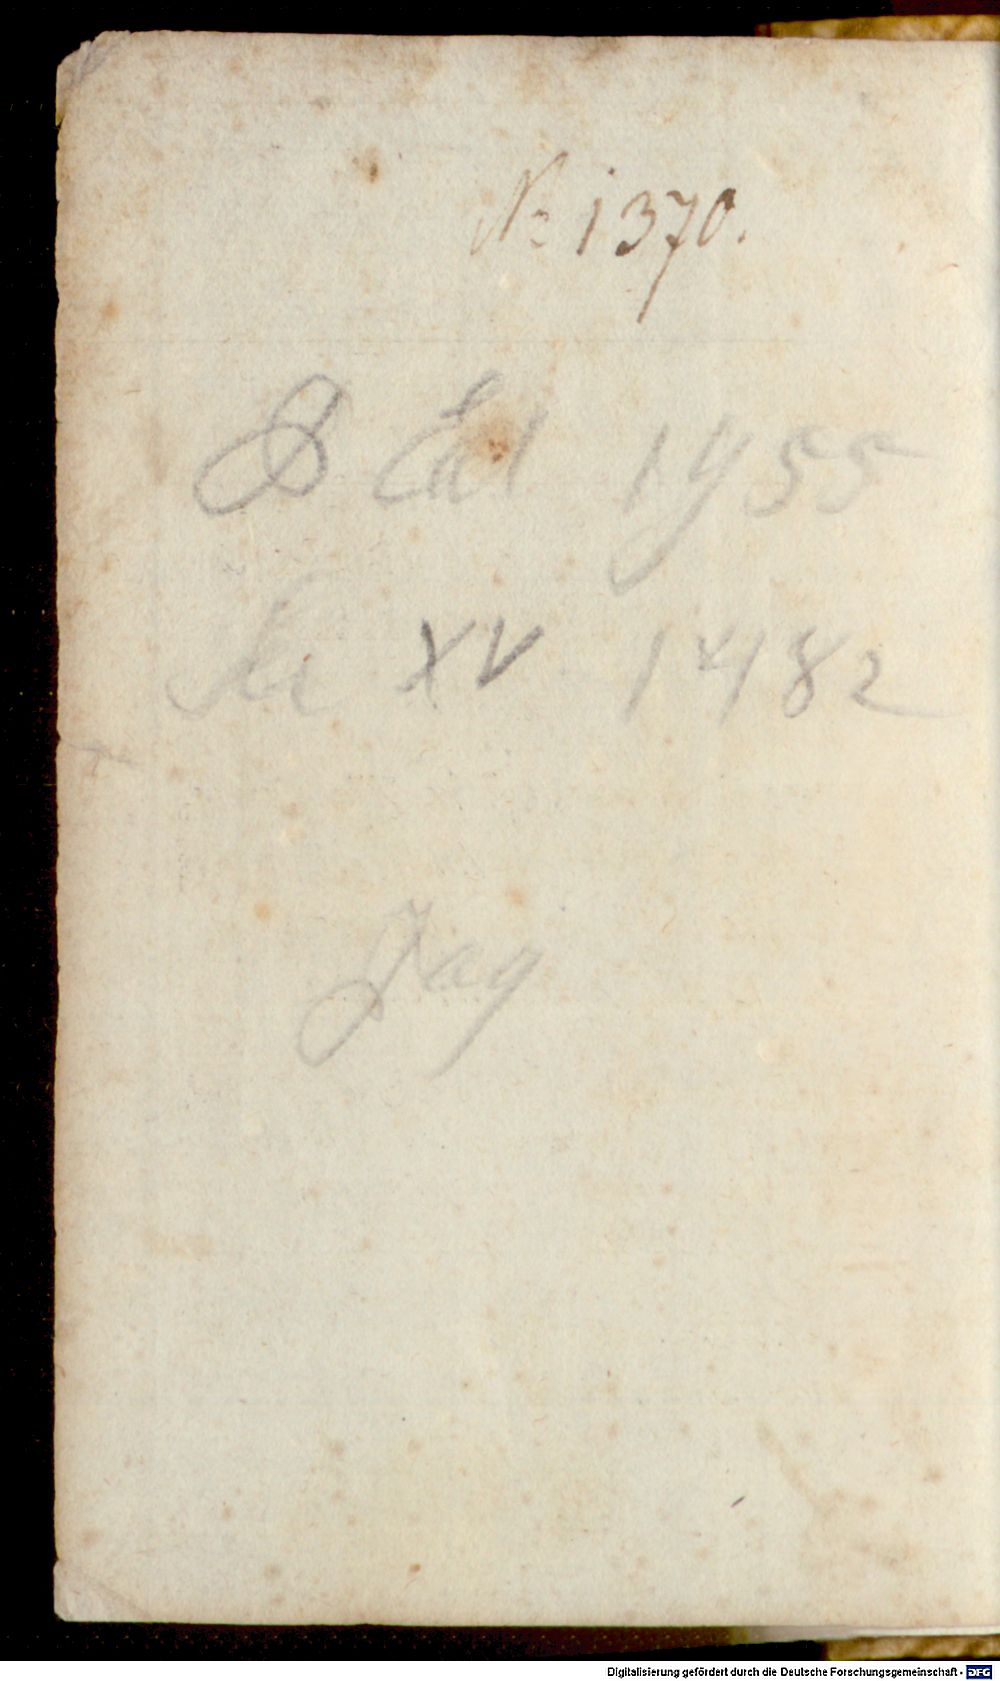 No 1370.
B Ed 1955
XV 1482
Jag
Digitalisierung gefördert durch die Deutsche Forschungsgemeinschaft - DFG